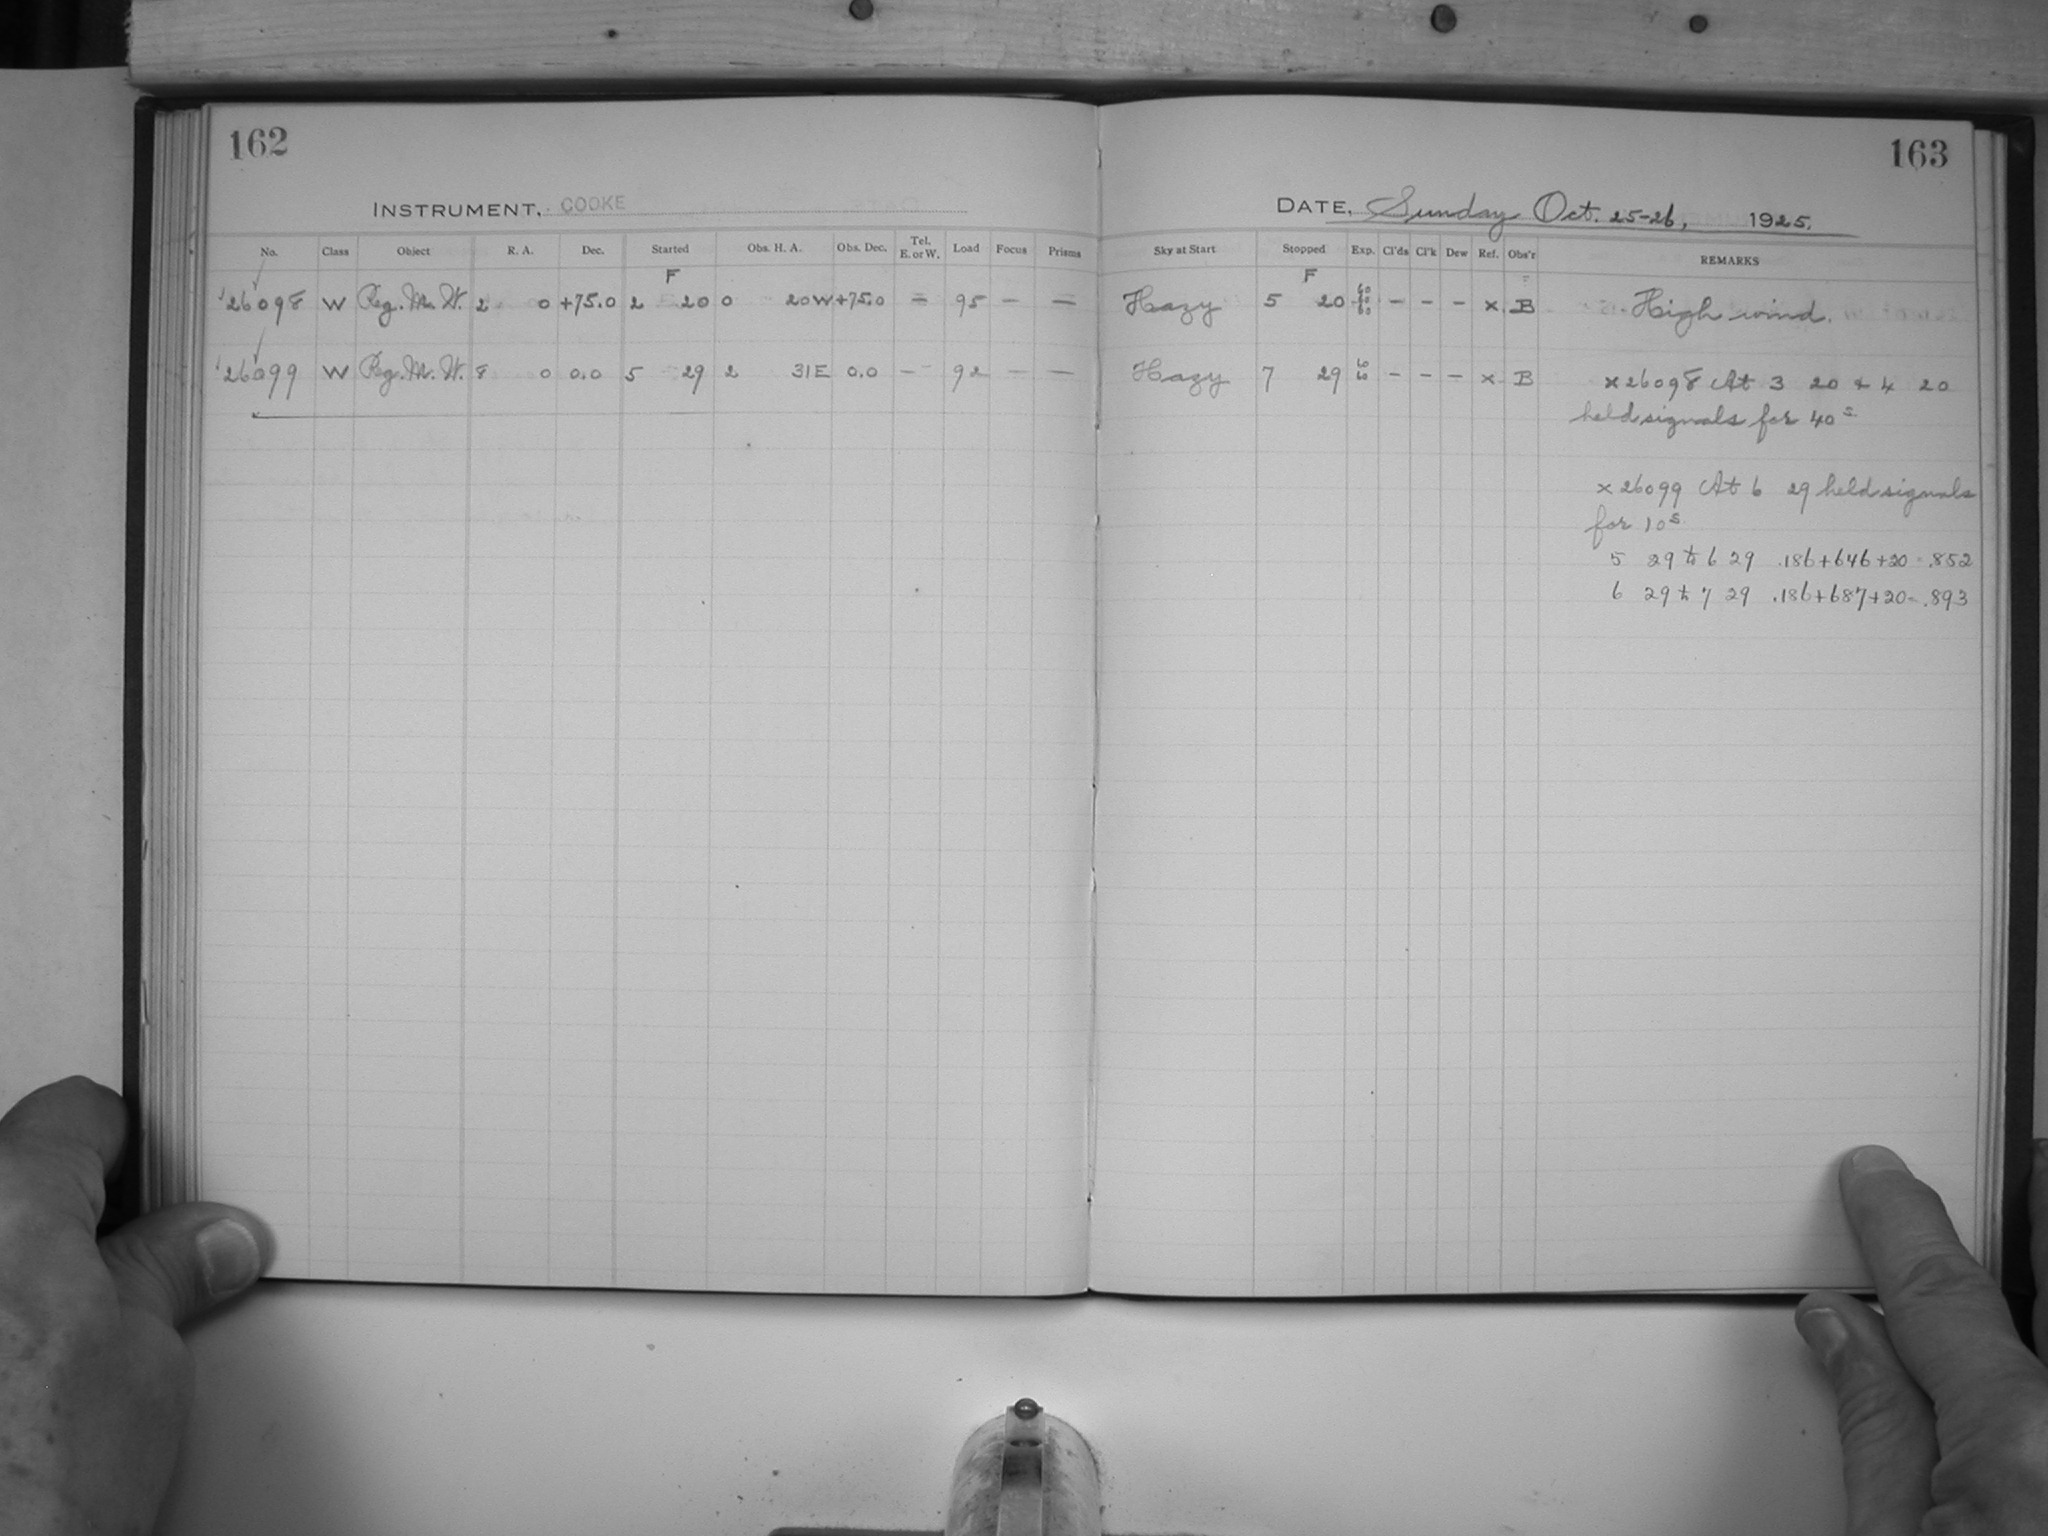 162
163
INSTRUMENT, COOKE
DATE, Sunday Oct. 25-26, 1925.
No. Class Object R. A. Dec. Started Obs. H. A. Obs. Dec. Tel. E. or W. Load Focus Prisms Sky at Start Stopped Exp. Cl'ds Cl'k Dew Ref. Obs'r REMARKS
F F
26098 W Reg. M. W. 2 0 +75.0 2 20 0 20W +75.0 – 95 – – Hazy 5 20 60 60 60 – – – x B High wind.
26099 W Reg. M. W. 8 0 0.0 5 29 2 31E 0.0 – 92 – – Hazy 7 29 60 60 – – – x B
x26098 At 3 20 + 4 20
held signals for 40s
x26099 At 6 29 held signals
for 10s
5 29 to 6 29 .186+646+20 = .852
6 29 to 7 29 .186+687+20 = .893